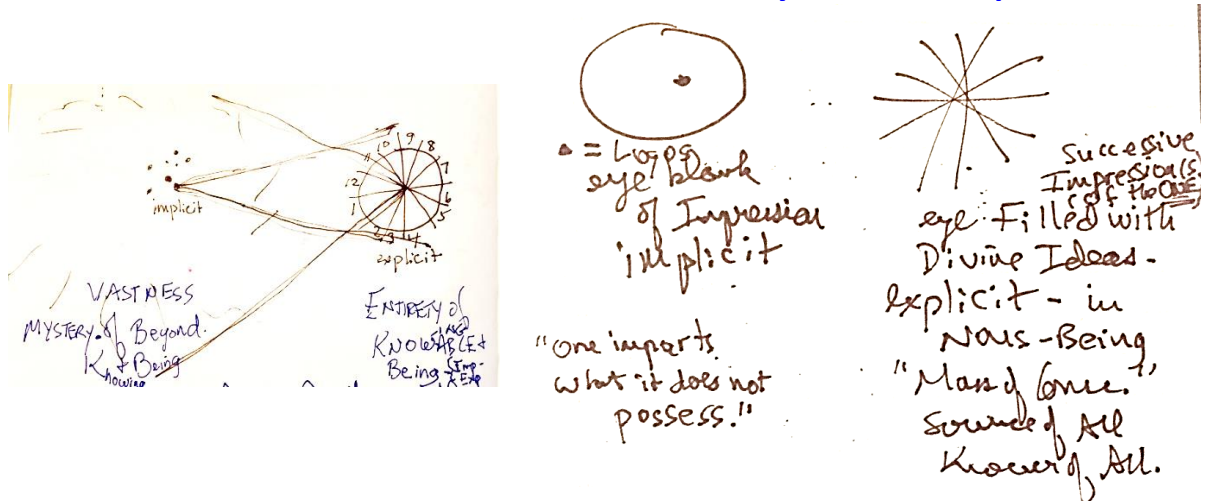 10 9 8
11 7
12 6
1 5
2 3 4
implicit
explicit
VASTNESS
MYSTERY of Beyond.
Knowing & Being
ENTIRETY of
KNOWABLE &
Being
= Logos
eye blank
of Impression
implicit
"One imparts
what it does not
possess."
Successive
Impression(s)
of the ONE
eye Filled with
Divine Ideas -
explicit - in
NOUS - Being
Source of All
Knower of All.